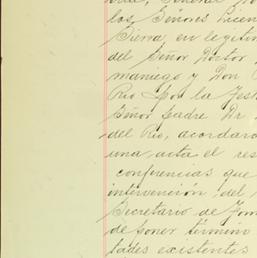 los Señores Licen
Sierra, en legítim
del Señor Doctor
maniego y Don
Rio por la Test
Señor padre Dr.
del Rio, acordaro
una acta el res
conferencias que
intervención del
Secretario de Fom
de poner término
tades existentes